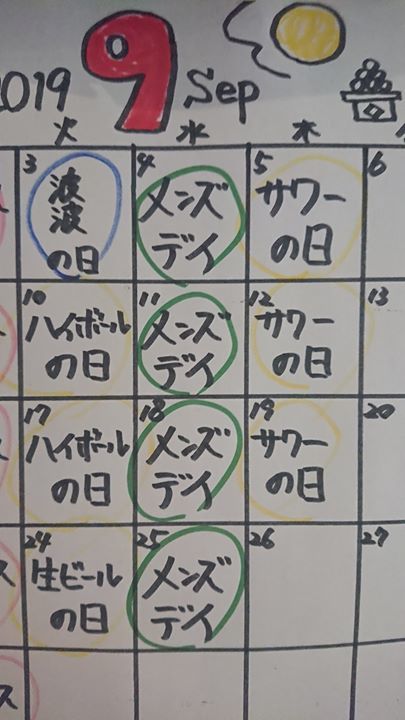 2019 9 Sep
火 水 木
3 4 5 6
波波の日 メンズデイ サワーの日
10 11 12 13
ハイボールの日 メンズデイ サワーの日
17 18 19 20
ハイボールの日 メンズデイ サワーの日
24 25 26 27
ス 生ビールの日 メンズデイ
ス